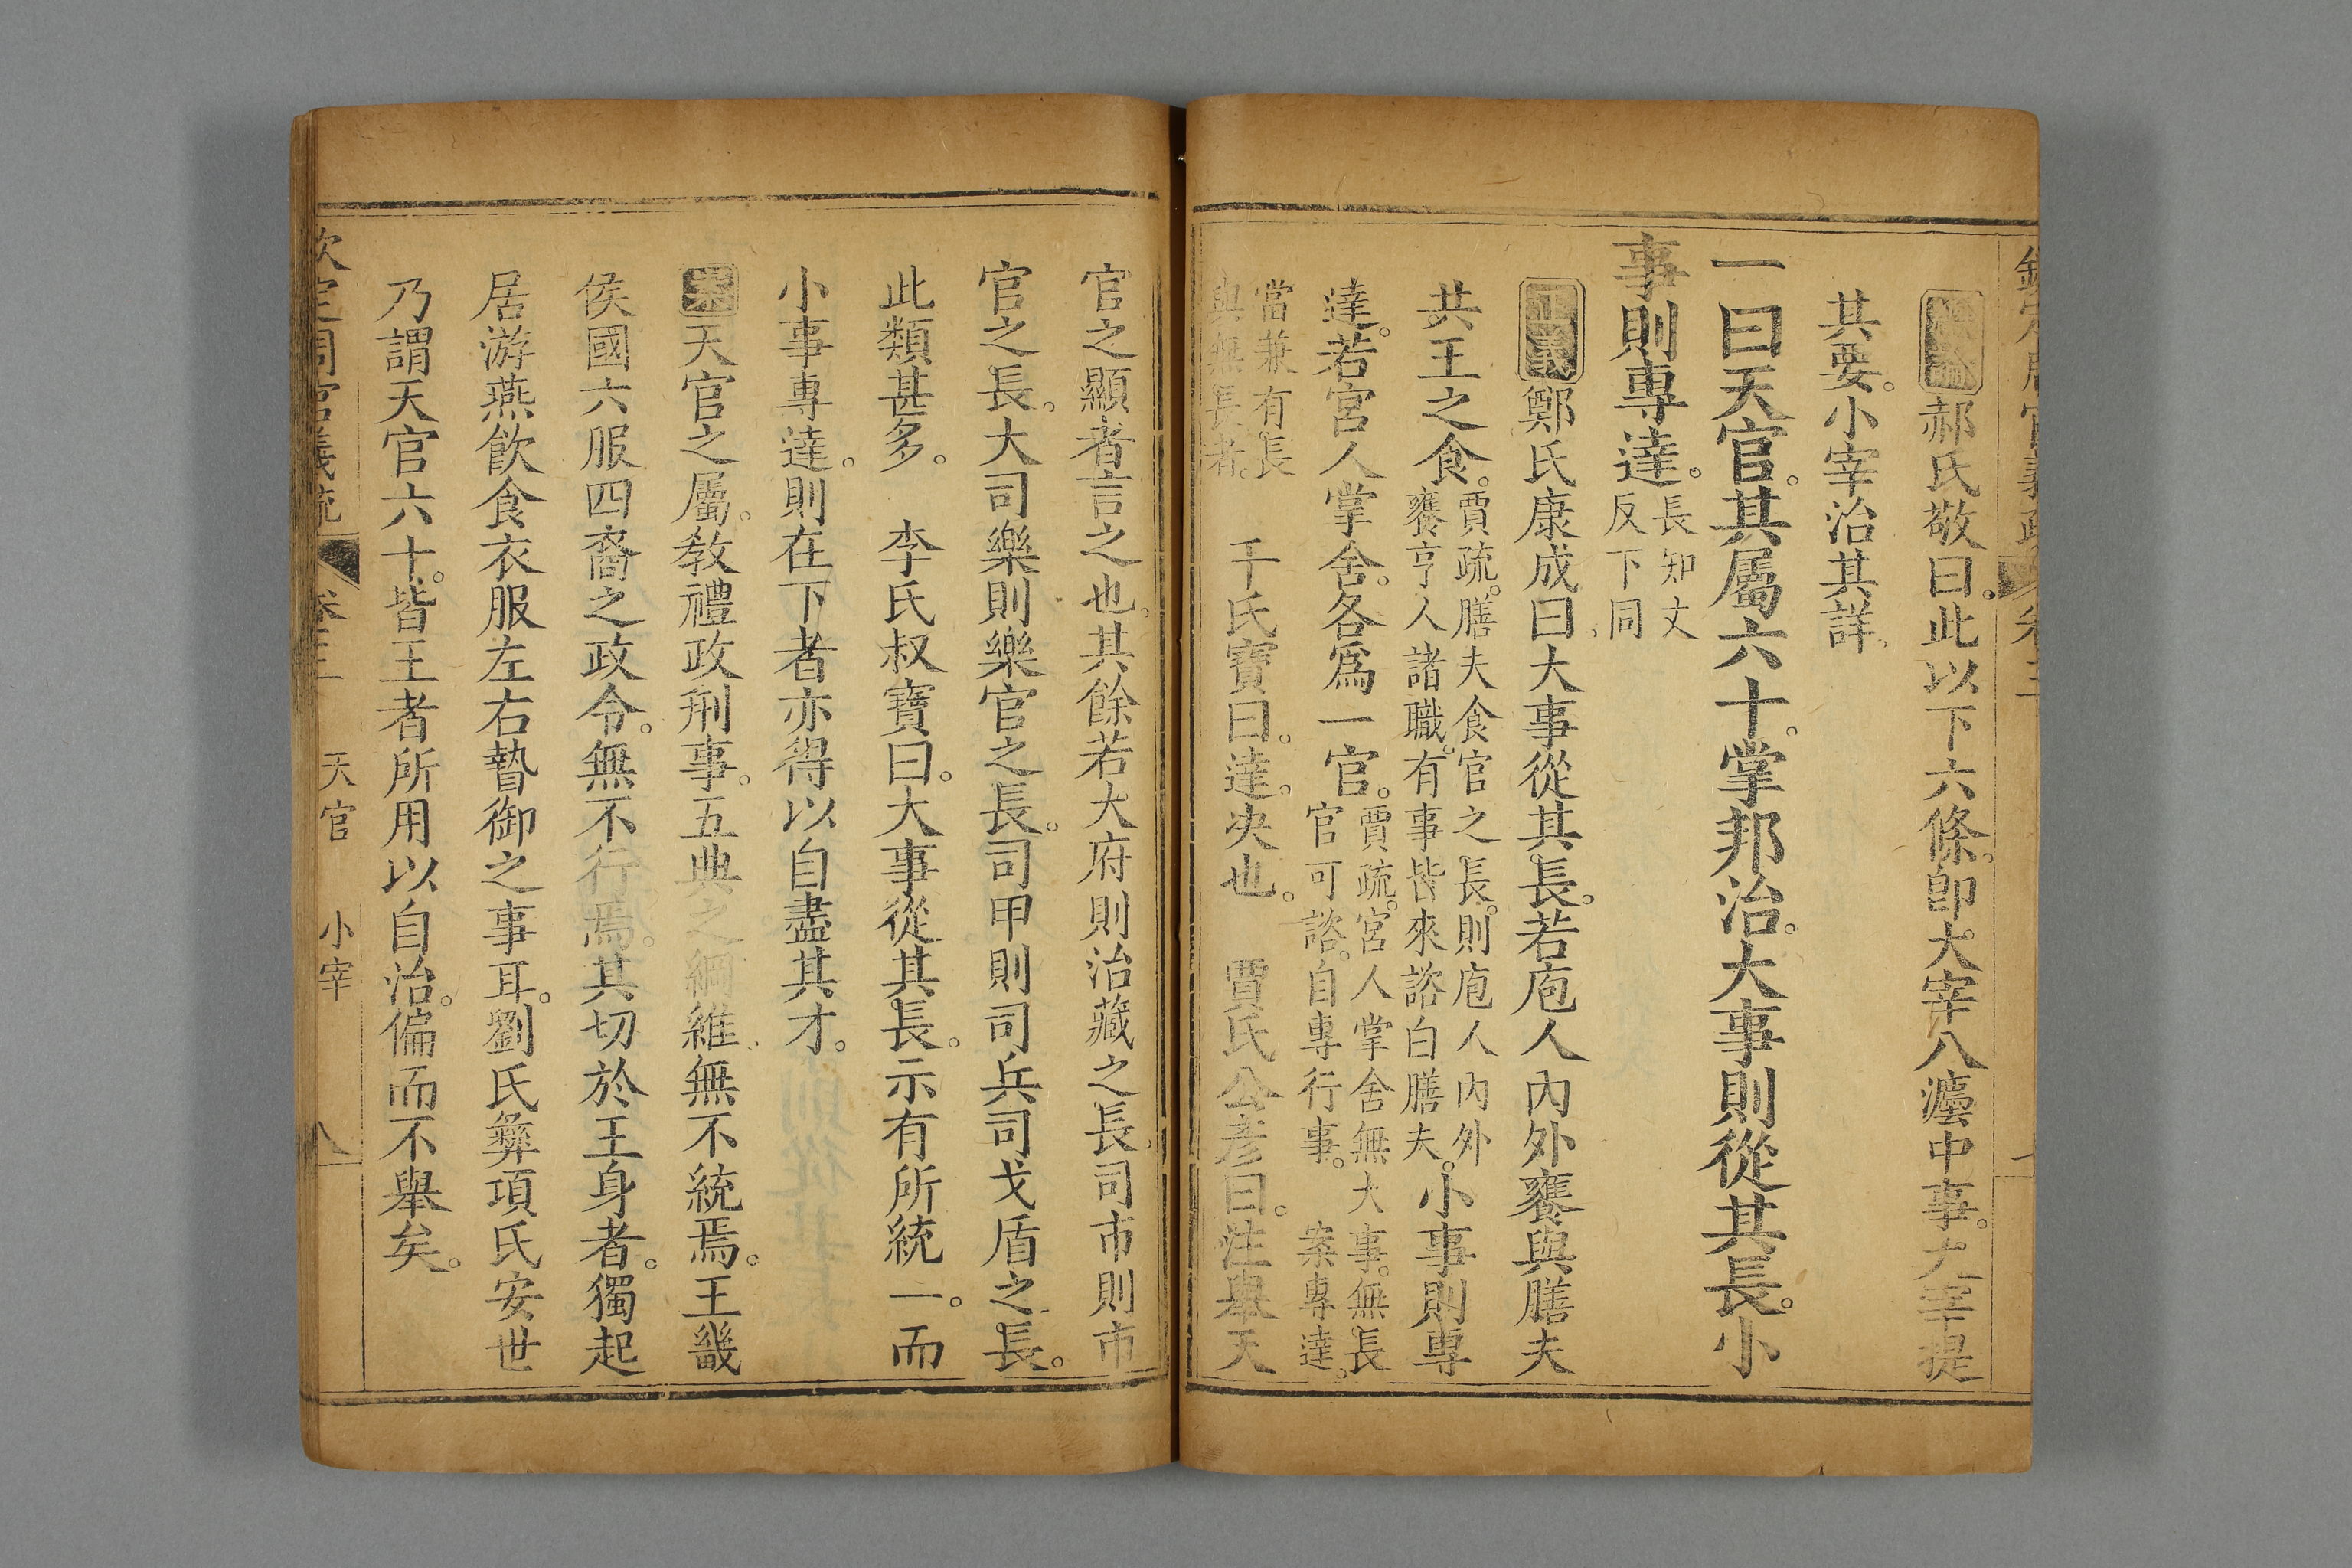 總論郝氏敬曰。此以下六條。卽大宰八灋中事。大宰提
其要。小宰治其詳。
一曰天官。其屬六十。掌邦治。大事則從其長。小
事則專達。長知丈
反下同
正義鄭氏康成曰。大事從其長。若庖人內外饔與膳夫
共王之食。賈疏。膳夫食官之長。則庖人內外
饔亨人諸職。有事皆來諮白膳夫。小事則專
達。若宮人掌舍。各爲一官。賈疏。宮人掌舍無大事。無長
官可諮。自專行事。 案專達。
當兼有長
與無長者。 干氏寶曰。達。决也。 賈氏公彥曰。注舉天
官之顯者言之也。其餘若大府則治藏之長。司市則市
官之長。大司樂則樂官之長。司甲則司兵司戈盾之長。
此類甚多。 李氏叔寶曰。大事從其長。示有所統一。而
小事專達。則在下者亦得以自盡其才。
案天官之屬。敎禮政刑事。五典之綱維。無不統焉。王畿
侯國六服四裔之政令。無不行焉。其切於王身者。獨起
居游燕飮食衣服左右暬御之事耳。劉氏彝項氏安世
乃謂天官六十。皆王者所用以自治。偏而不舉矣。
欽定周官義疏 卷三 天官 小宰 八